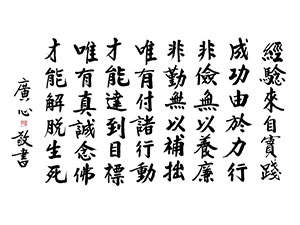 經驗來自實踐
成功由於力行
非儉無以養廉
非勤無以補拙
唯有付諸行動
才能達到目標
唯有真誠念佛
才能解脫生死
廣心敬書